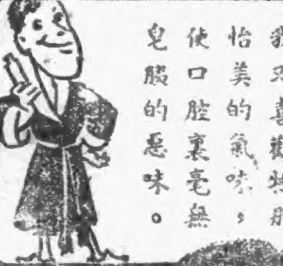 我又喜歡牠那
怡美的氣味，
使口腔裏毫無
皂膩的惡味。